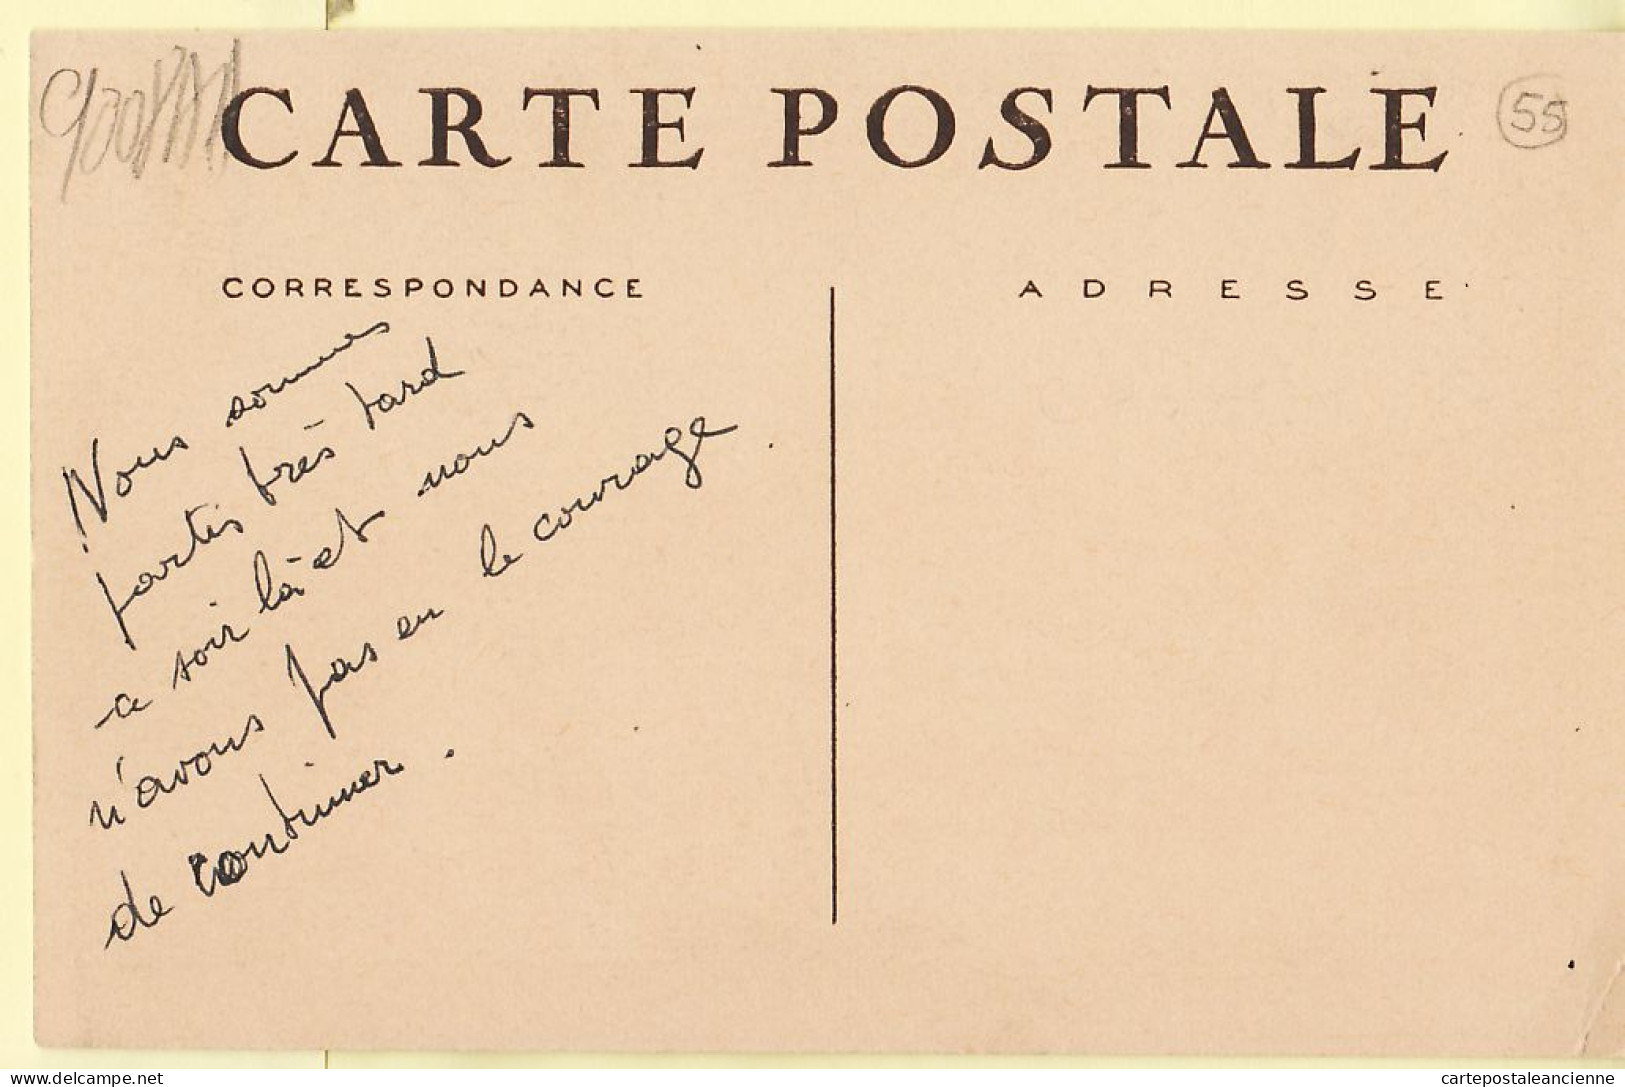 CARTE POSTALE
55
CORRESPONDANCE
ADRESSE
Nous sommes
partis très tard
ce soir là et nous
n'avons pas eu le courage
de continuer.
delcampe.net
cartepostaleancienne